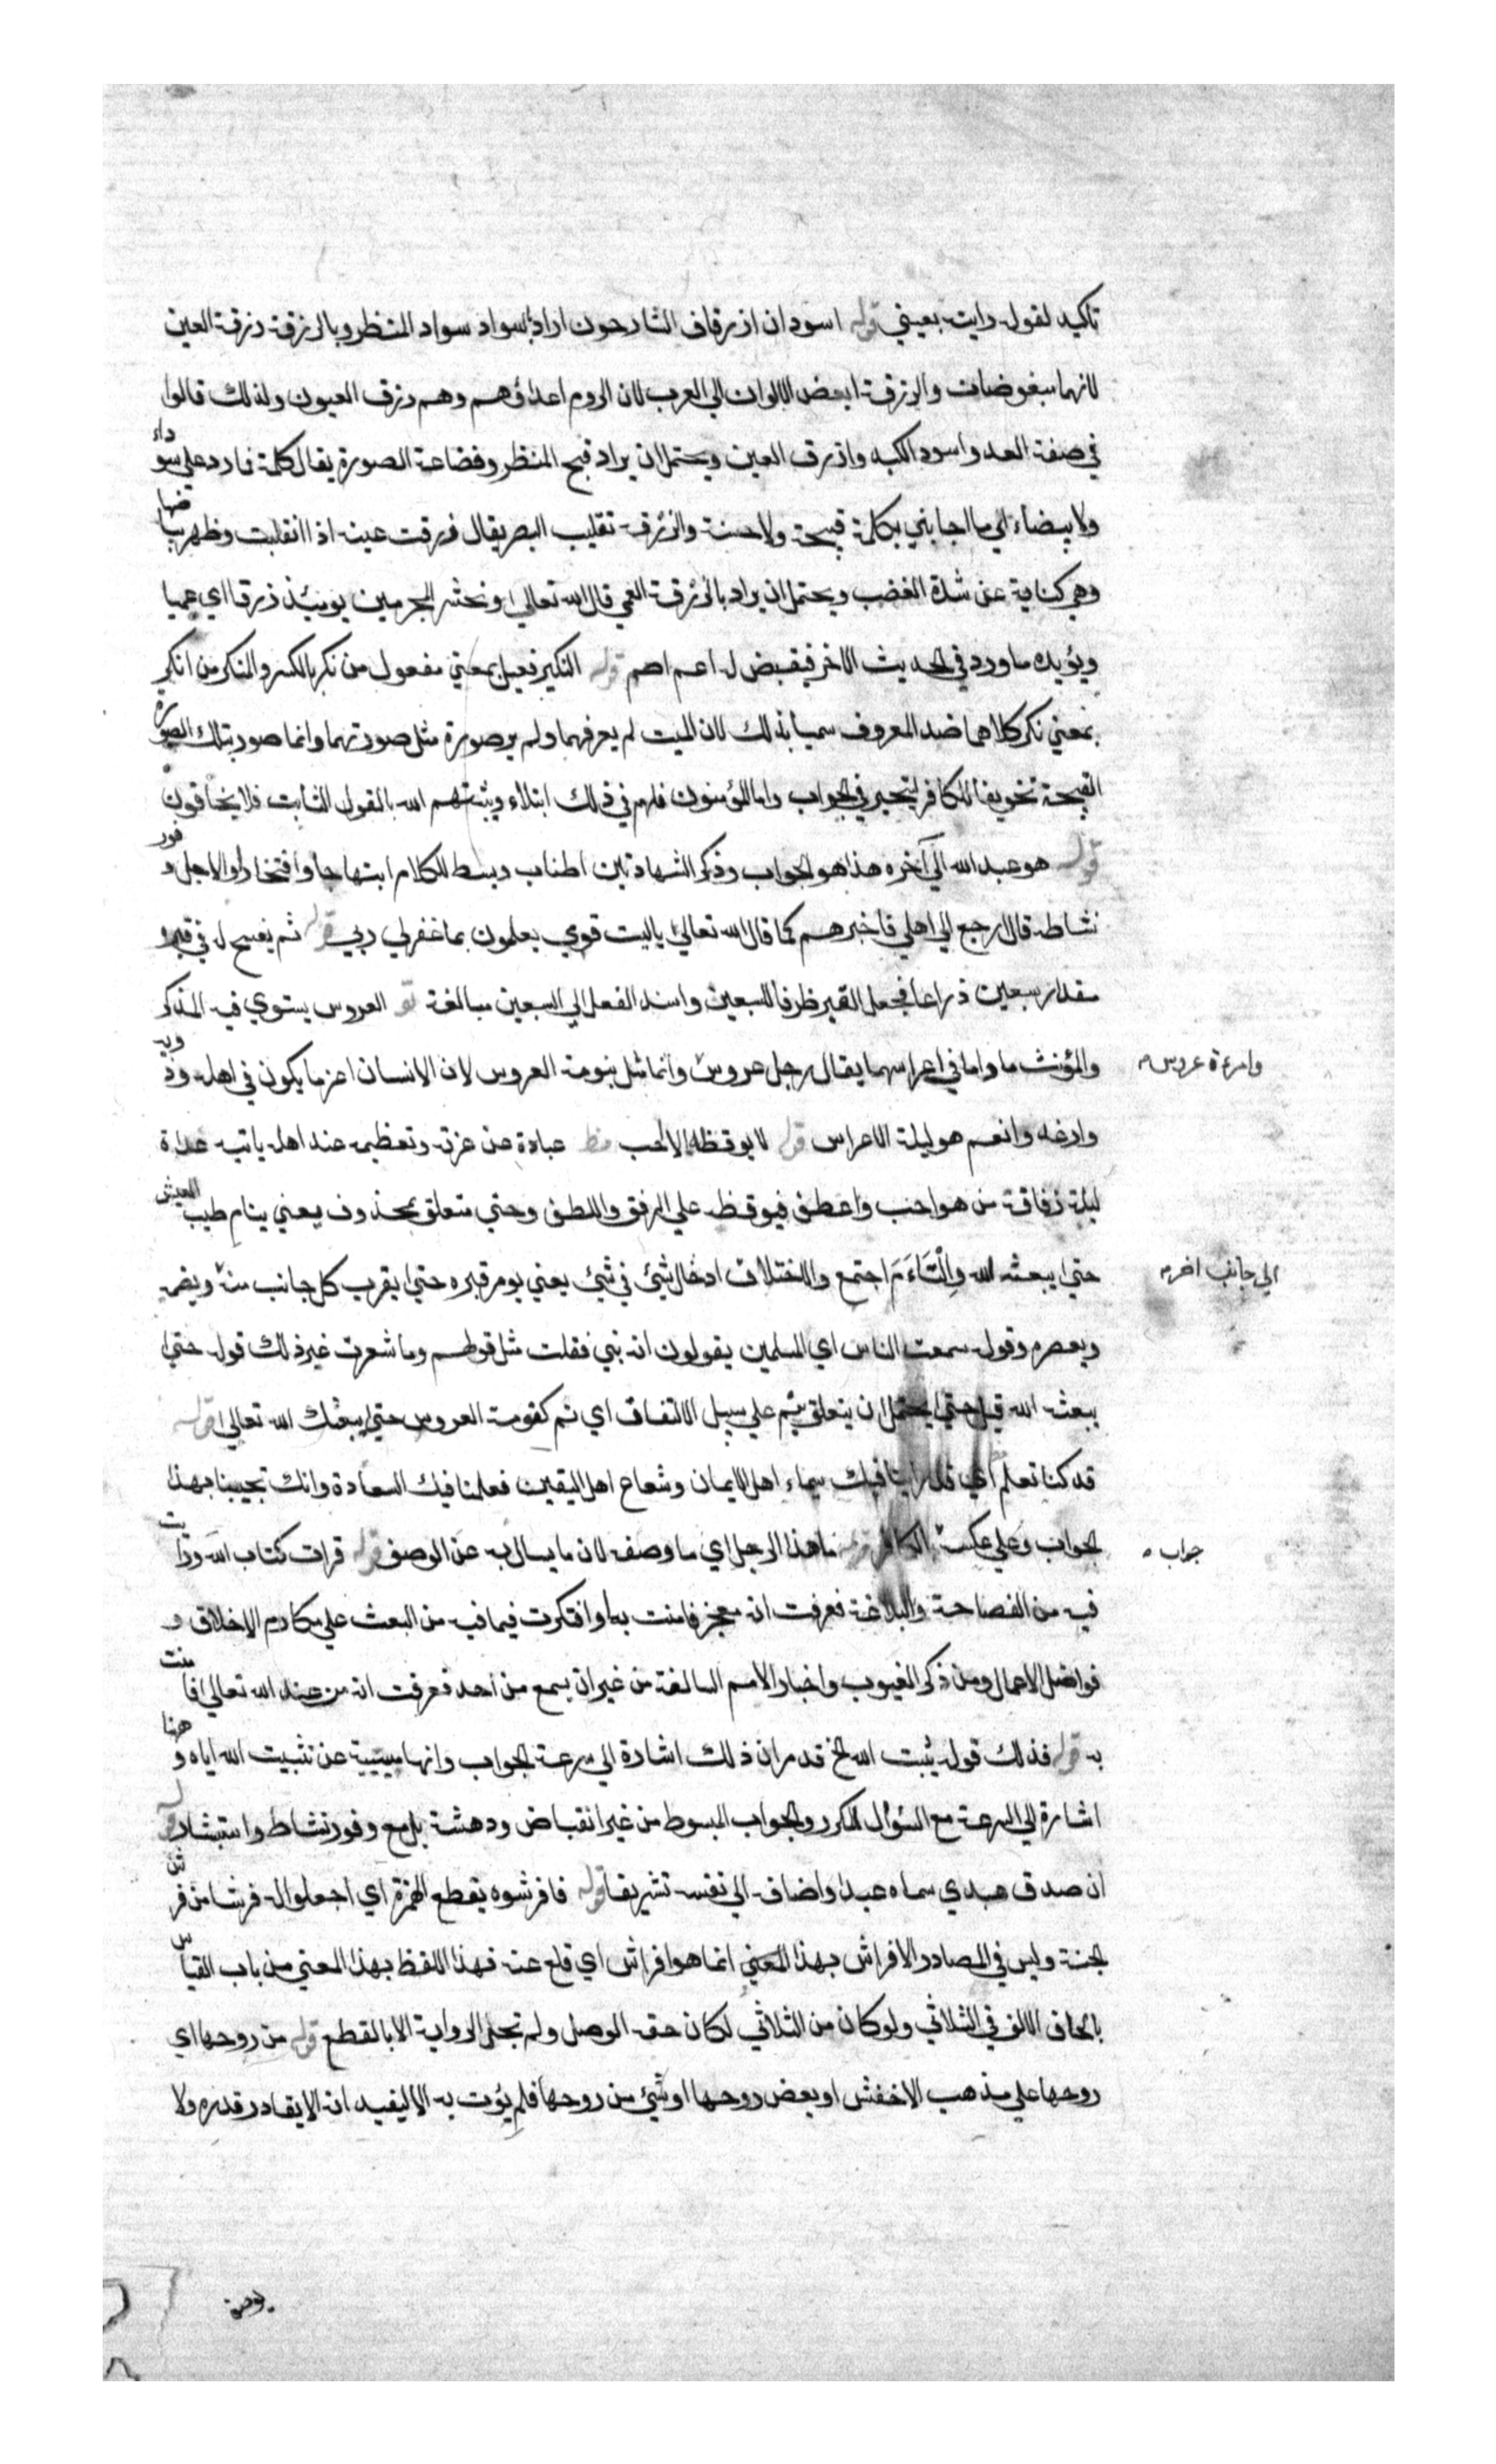 تاكيد لقوله رايته بعيني قوله اسودان ازرقان الشارحون اراد بالسواد سواد المنظر وبالزرقة زرقة العين
لانهما مبغوضان والزرقة ابغض الالوان الي العرب لان الروم اعداؤهم وهم زرق العيون ولذلك قالوا
في صفة العدو اسود الكبد وازرق العين ويحتمل ان يراد قبح المنظر وفضاعة الصورة يقال كلمة فما رد علي سوداء
ولا بيضاء اي ما اجابني بكلمة قبيحة ولا حسنة والزرقة تقليب البصر يقال زرقت عينه اذا انقلبت وظهر بياضها
وهي كناية عن شدة الغضب ويحتمل ان يراد بالزرقة العمي قال الله تعالي ونحشر المجرمين يومئذ زرقا اي عميا
ويؤيده ما ورد في الحديث الاخر فيقيض له اعمي اصم قوله النكير فعيل بمعني مفعول من نكر بالكسر والمنكر من انكر
بمعني نكر كلاهما ضد المعروف سميا بذلك لان الميت لم يعرفهما ولم ير صورة مثل صورتهما وانما صور بتلك الصورة
القبيحة تخويفا للكافر ليتحير في الجواب واما المؤمنون فلهم في ذلك ابتلاء ويثبتهم الله بالقول الثابت فلا يخافون
قوله هو عبد الله الي آخره هذا هو الجواب وذكر الشهادتين اطناب وبسط للكلام ابتهاجا وافتخارا او لاجل وفور
نشاط قال ارجع الي اهلي فاخبرهم كما قال الله تعالي ياليت قومي يعلمون بما غفر لي ربي قوله ثم يفسح له في قبره
مقدار سبعين ذراعا فجعل القبر ظرفا للسبعين واسند الفعل الي السبعين مبالغة قو العروس يستوي فيه المذكر
والمؤنث ما داما في اعراسهما يقال رجل عروس وانما مثل بنومة العروس لان الانسان اعز ما يكون في اهله وذويه
وامرءة عروس
وارغد وانعم هو ليلة الاعراس قوله لا يوقظه الا احب عبارة عن عزته وتعظيمه عند اهله ياتيه غداة
ليلة زفافه من هو احب واعطف فيوقظه علي الرفق واللطف وحتي متعلق بمحذوف يعني ينام طيب العيش
حتي يبعثه الله والْتَاَمَ اجتمع والاختلاف ادخال شئ في شئ يعني يومر قبره حتي يقرب كل جانب منه ويضمه
الي جانب اخر
ويعصره وقوله سمعت الناس اي المسلمين يقولون انه نبي فقلت مثل قولهم وما شعرت غير ذلك قوله حتي
يبعثه الله قيل حتي يحتمل ان يتعلق بنم علي سبيل الالتفات اي نم كنومة العروس حتي يبعثك الله تعالي قوله
قد كنا نعلم اي قد راينا فيك سيماء اهل الايمان وشعاع اهل اليقين فعلمنا فيك السعادة وانك تجيبنا بهذا
الجواب وعلي عكسه الكافر قوله ما هذا الرجل اي ما وصفه لان ما يسال به عن الوصف قوله قرات كتاب الله ورايت
جواب
فيه من الفصاحة والبلاغة فعرفت انه معجز فامنت به او افتكرت فيما فيه من البعث علي مكارم الاخلاق و
فواضل الاعمال ومن ذكر الغيوب واخبار الامم السالفة من غير ان يسمع من احد فعرفت انه من عند الله تعالي فامنت
به قوله فذلك قوله يثبت الله الخ قد مر ان ذلك اشارة الي سرعة الجواب وانها مسببة عن تثبيت الله اياه وهنا
اشارة الي السرعة مع السؤال المكرر والجواب المبسوط من غير انقباض ودهشة بل مع وفور نشاط واستبشار قوله
ان صدق عبدي سماه عبدا واضافه الي نفسه تشريفا قوله فافرشوه بقطع الهمزة اي اجعلوا له فرشا من فرش
الجنة وليس في المصادر الافراش بهذا المعني انما هو افراش اي قلع عنه فهذا اللفظ بهذا المعني من باب القياس
بالحاق الالف في الثلاثي ولو كان من الثلاثي لكان حقه الوصل ولم تجئ الرواية الا بالقطع قوله من روحها اي
روحها علي مذهب الاخفش او بعض روحها او شئ من روحها فلم يؤت به الا ليفيد انه لا يقادر قدره ولا
يوصف